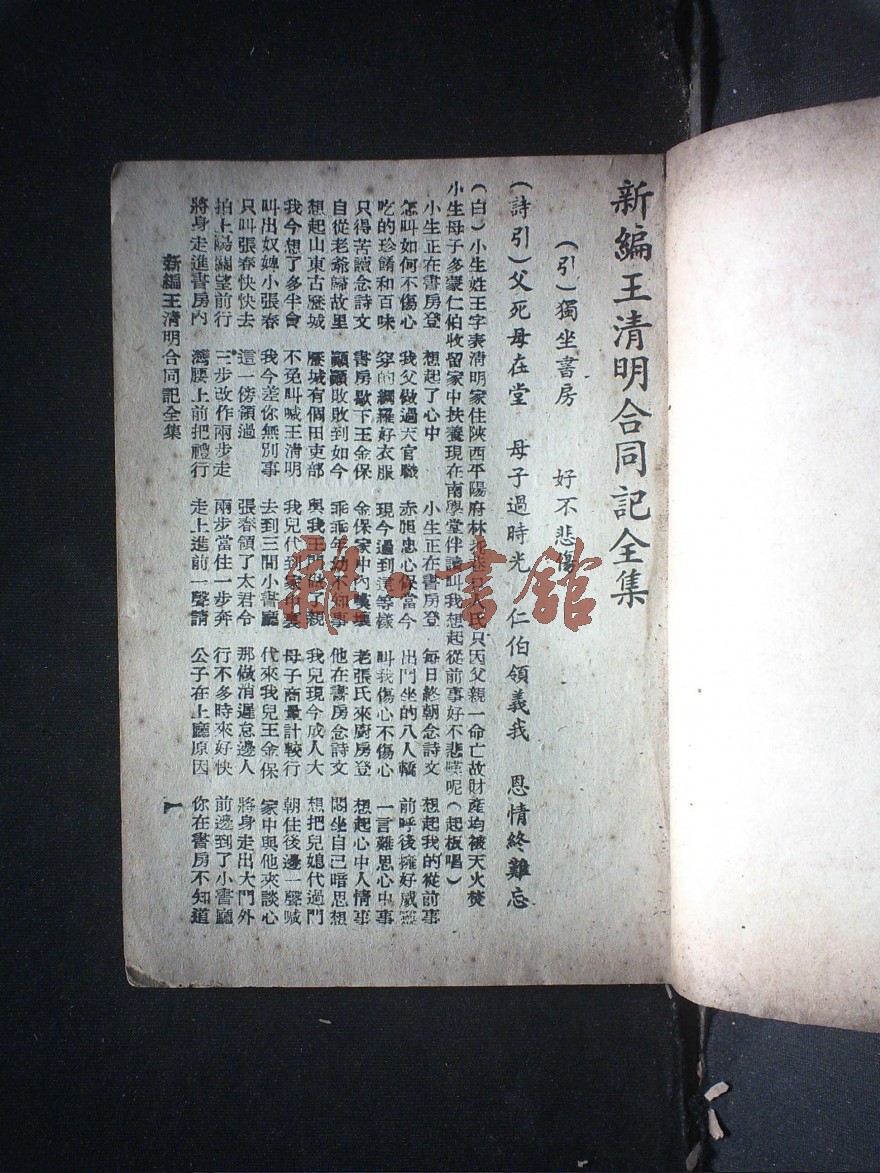 新編王清明合同記全集
（引）獨坐書房　好不悲傷
（詩引）父死母在堂　母子過時光　仁伯領義我　恩情終難忘
（白）小生姓王字表清明家住陝西平陽府林人氏只因父親一命亡故財產均被天火焚
小生母子多蒙仁伯收留家中扶養現在南學堂伴讀叫我想起從前事好不悲嘆呢（起板唱）
小生正在書房登　想起了心中　小生正在書房登　每日終朝念詩文　想起我的從前事
怎叫如何不傷心　我父做過大官職　赤胆忠心保當今　出門坐的八人轎　前呼後擁好威靈
吃的珍餚和百味　穿的綢羅好衣服　現今過到這等樣　叫我傷心不傷心　一言難思心中事
只得苦讀念詩文　書房歇下王金保　金保家中內　老張氏來廚房登　想起心中人情事
自從老爺歸故里　顛顛敗敗到如今　乖乖年幼不知事　他在書房念詩文　悶坐自己暗思想
想起山東古歷城　歷城有個田吏部　與我王門親　我兒現今成人大　想把兒媳代過門
我今想了多半會　不免叫喊王清明　我兒代到家中裏　母子商量計較行　朝住後邊一聲喊
叫出奴婢小張春　我今差你無別事　去到三間小書廳　代來我兒王金保　家中與他來談心
只叫張春快快去　這一傍領過　張春領了太君令　那做消遲怠邊人　將身走出大門外
拍上陽關望前行　三步改作兩步走　兩步當住一步奔　行不多時來好快　前邊到了小書廳
將身走進書房內　灣腰上前把禮行　走上進前一聲請　公子在上廳原因　你在書房不知道
新編王清明合同記全集
一
雜·書館